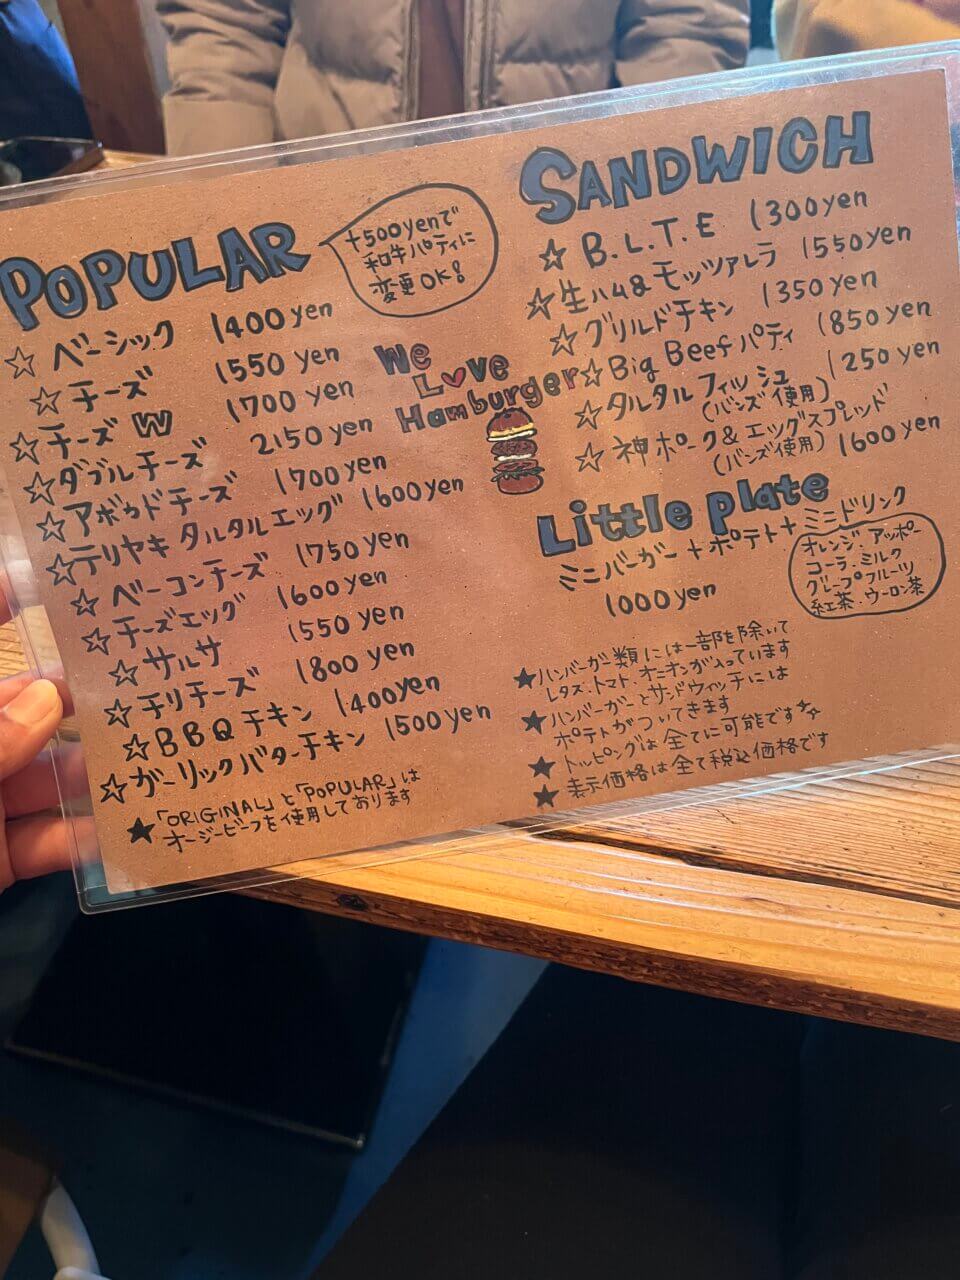 POPULAR
+500yenで
和牛パティに
変更OK!
☆ ベーシック 1400yen
☆ チーズ 1550yen
☆ チーズW 1700yen
☆ ダブルチーズ 2150yen
☆ アボカドチーズ 1700yen
☆ テリヤキタルタルエッグ 1600yen
☆ ベーコンチーズ 1750yen
☆ チーズエッグ 1600yen
☆ サルサ 1550yen
☆ チリチーズ 1800yen
☆ BBQチキン 1400yen
☆ ガーリックバターチキン 1500yen
★「ORIGINAL」と「POPULAR」は
オージービーフを使用しております
We
Love
Hamburger
SANDWICH
☆ B.L.T.E 1300yen
☆ 生ハム&モッツァレラ 1550yen
☆ グリルドチキン 1350yen
☆ Big Beefパティ 1850yen
☆ タルタルフィッシュ 1250yen
(バンズ使用)
☆ 神ポーク&エッグスプレッド
(バンズ使用) 1600yen
Little Plate
ミニバーガー+ポテト+ミニドリンク
1000yen
オレンジ・アッポー
コーラ・ミルク
グレープフルーツ
紅茶・ウーロン茶
★ハンバーガー類には一部を除いて
レタス・トマト・オニオンが入っています
★ハンバーガーとサンドウィッチには
ポテトがついてきます
★トッピングは全てに可能です
★表示価格は全て税込価格です